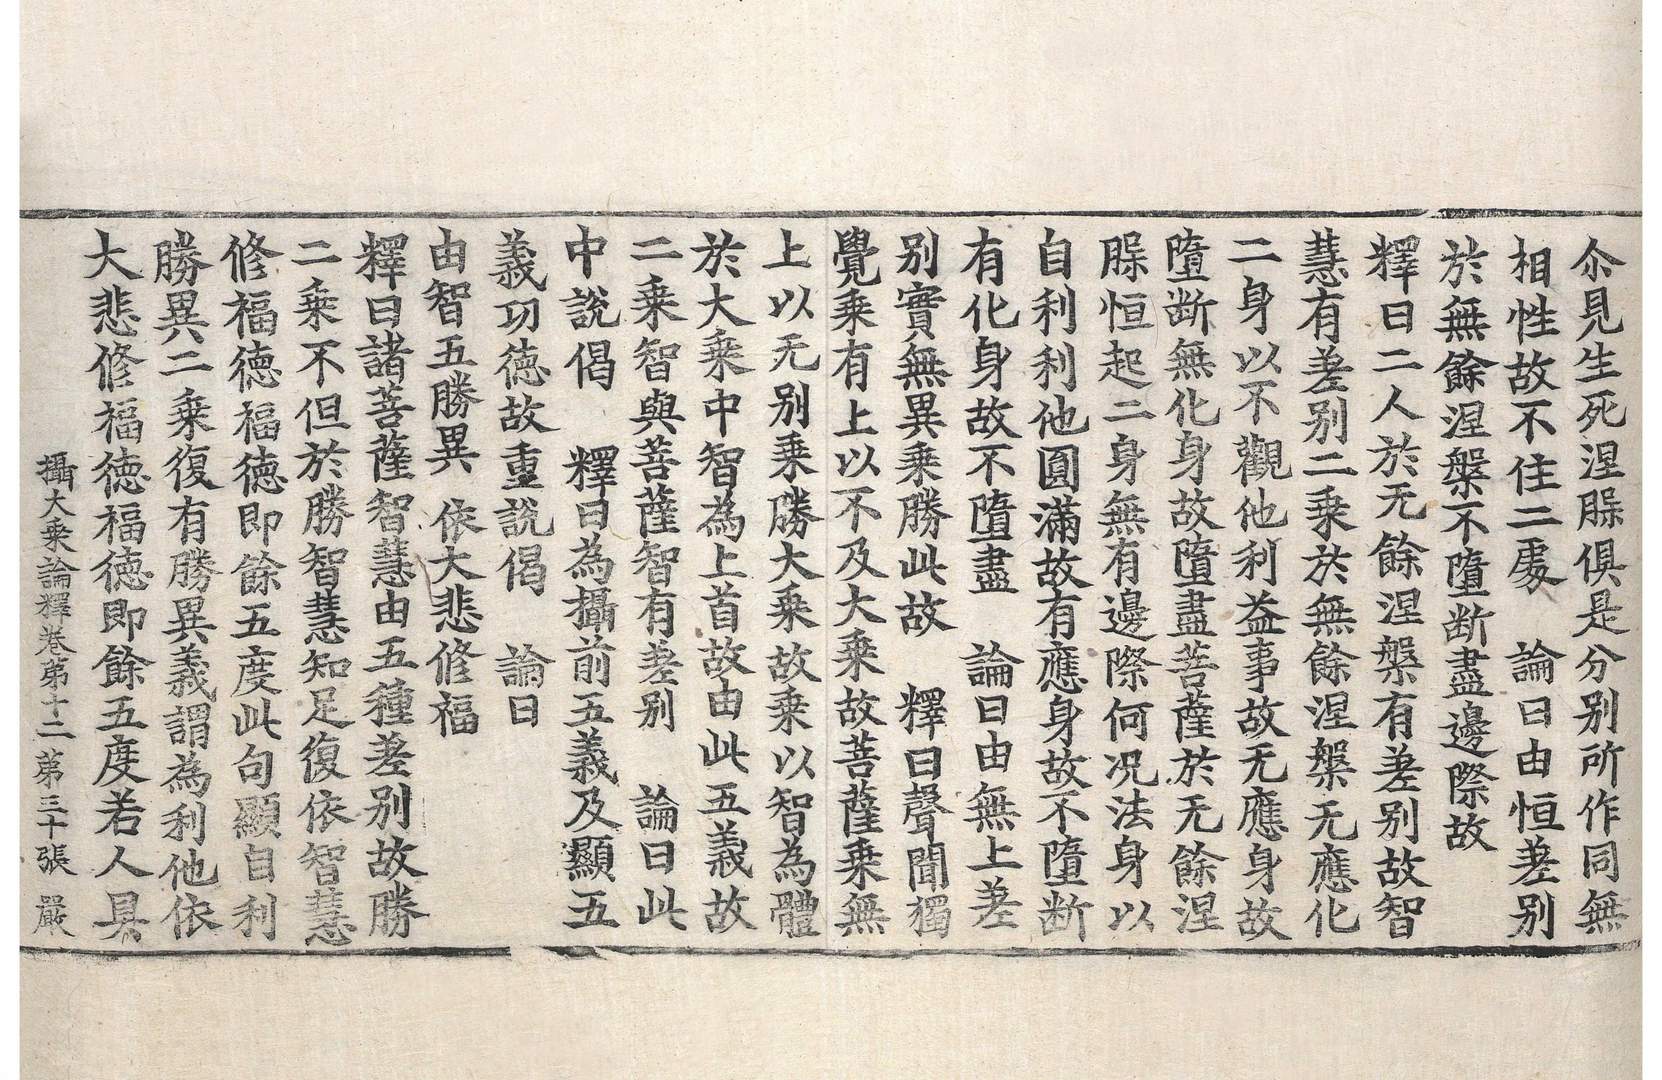 尒見生死涅槃俱是分别所作同無
相性故不住二處　論曰由恒差别
於無餘涅槃不墮断盡邊際故
釋曰二人於无餘涅槃有差别故智
慧有差别二乗於無餘涅槃无應化
二身以不觀他利益事故无應身故
墮断無化身故墮盡菩薩於无餘涅
槃恒起二身無有邊際何况法身以
自利利他圓滿故有應身故不墮断
有化身故不墮盡　論曰由無上差
别實無異乗勝此故　釋曰聲聞獨
覺乗有上以不及大乗故菩薩乗無
上以无别乗勝大乗故乗以智為體
於大乗中智為上首故由此五義故
二乗智與菩薩智有差别　論曰此
中說偈　釋曰為攝前五義及顯五
義功徳故重說偈　論曰
由智五勝異　依大悲修福
釋曰諸菩薩智慧由五種差别故勝
二乗不但於勝智慧知足復依智慧
修福徳福徳即餘五度此句顯自利
勝異二乗復有勝異義謂為利他依
大悲修福徳福徳即餘五度若人具
攝大乗論釋卷第十二　第三十張　嚴